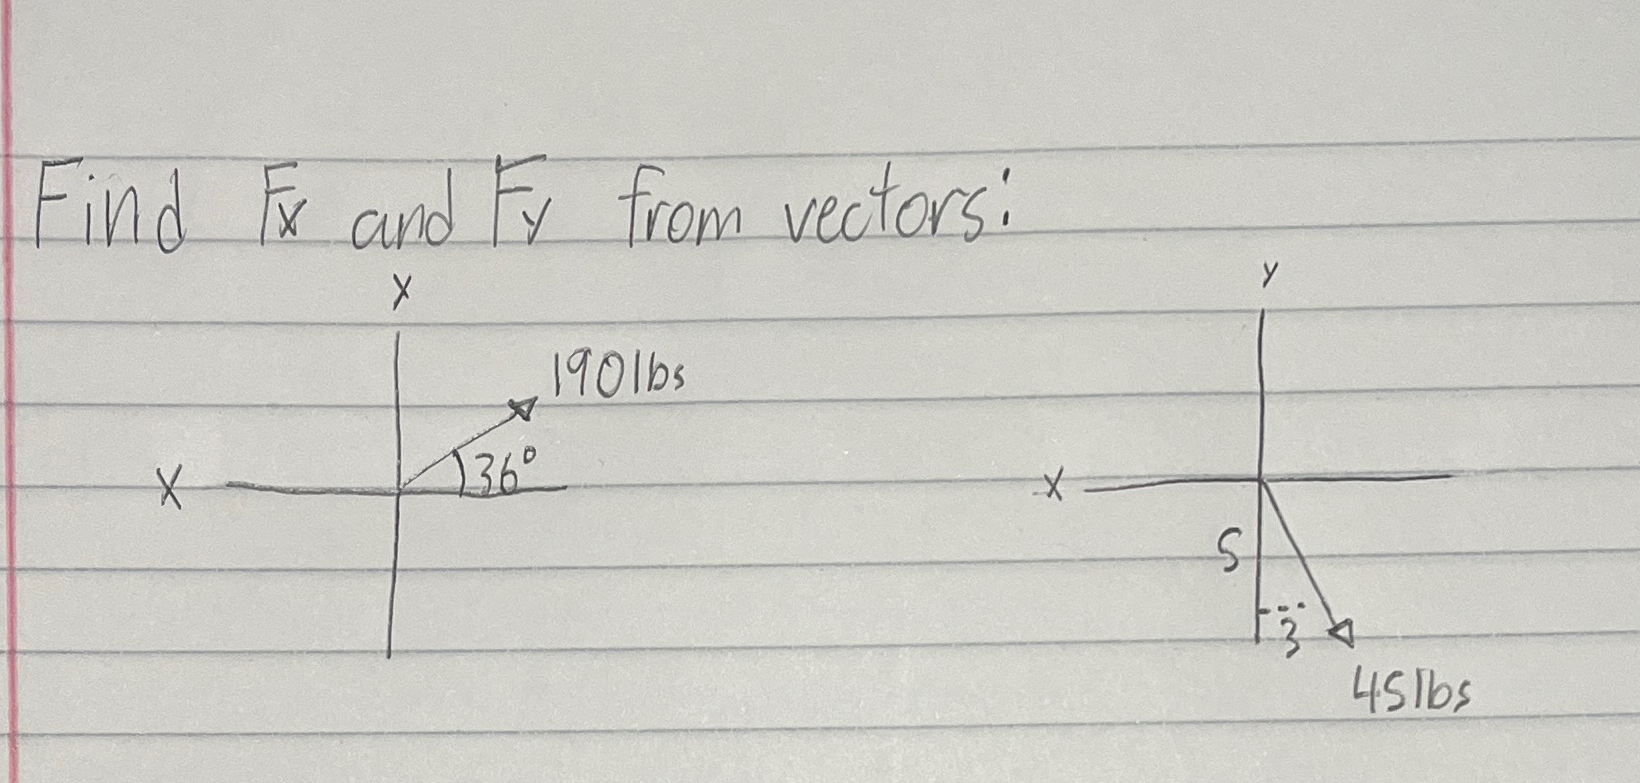 Find Fx and Fy from vectors:
X
Y
190lbs
X
36°
X
5
3
45lbs